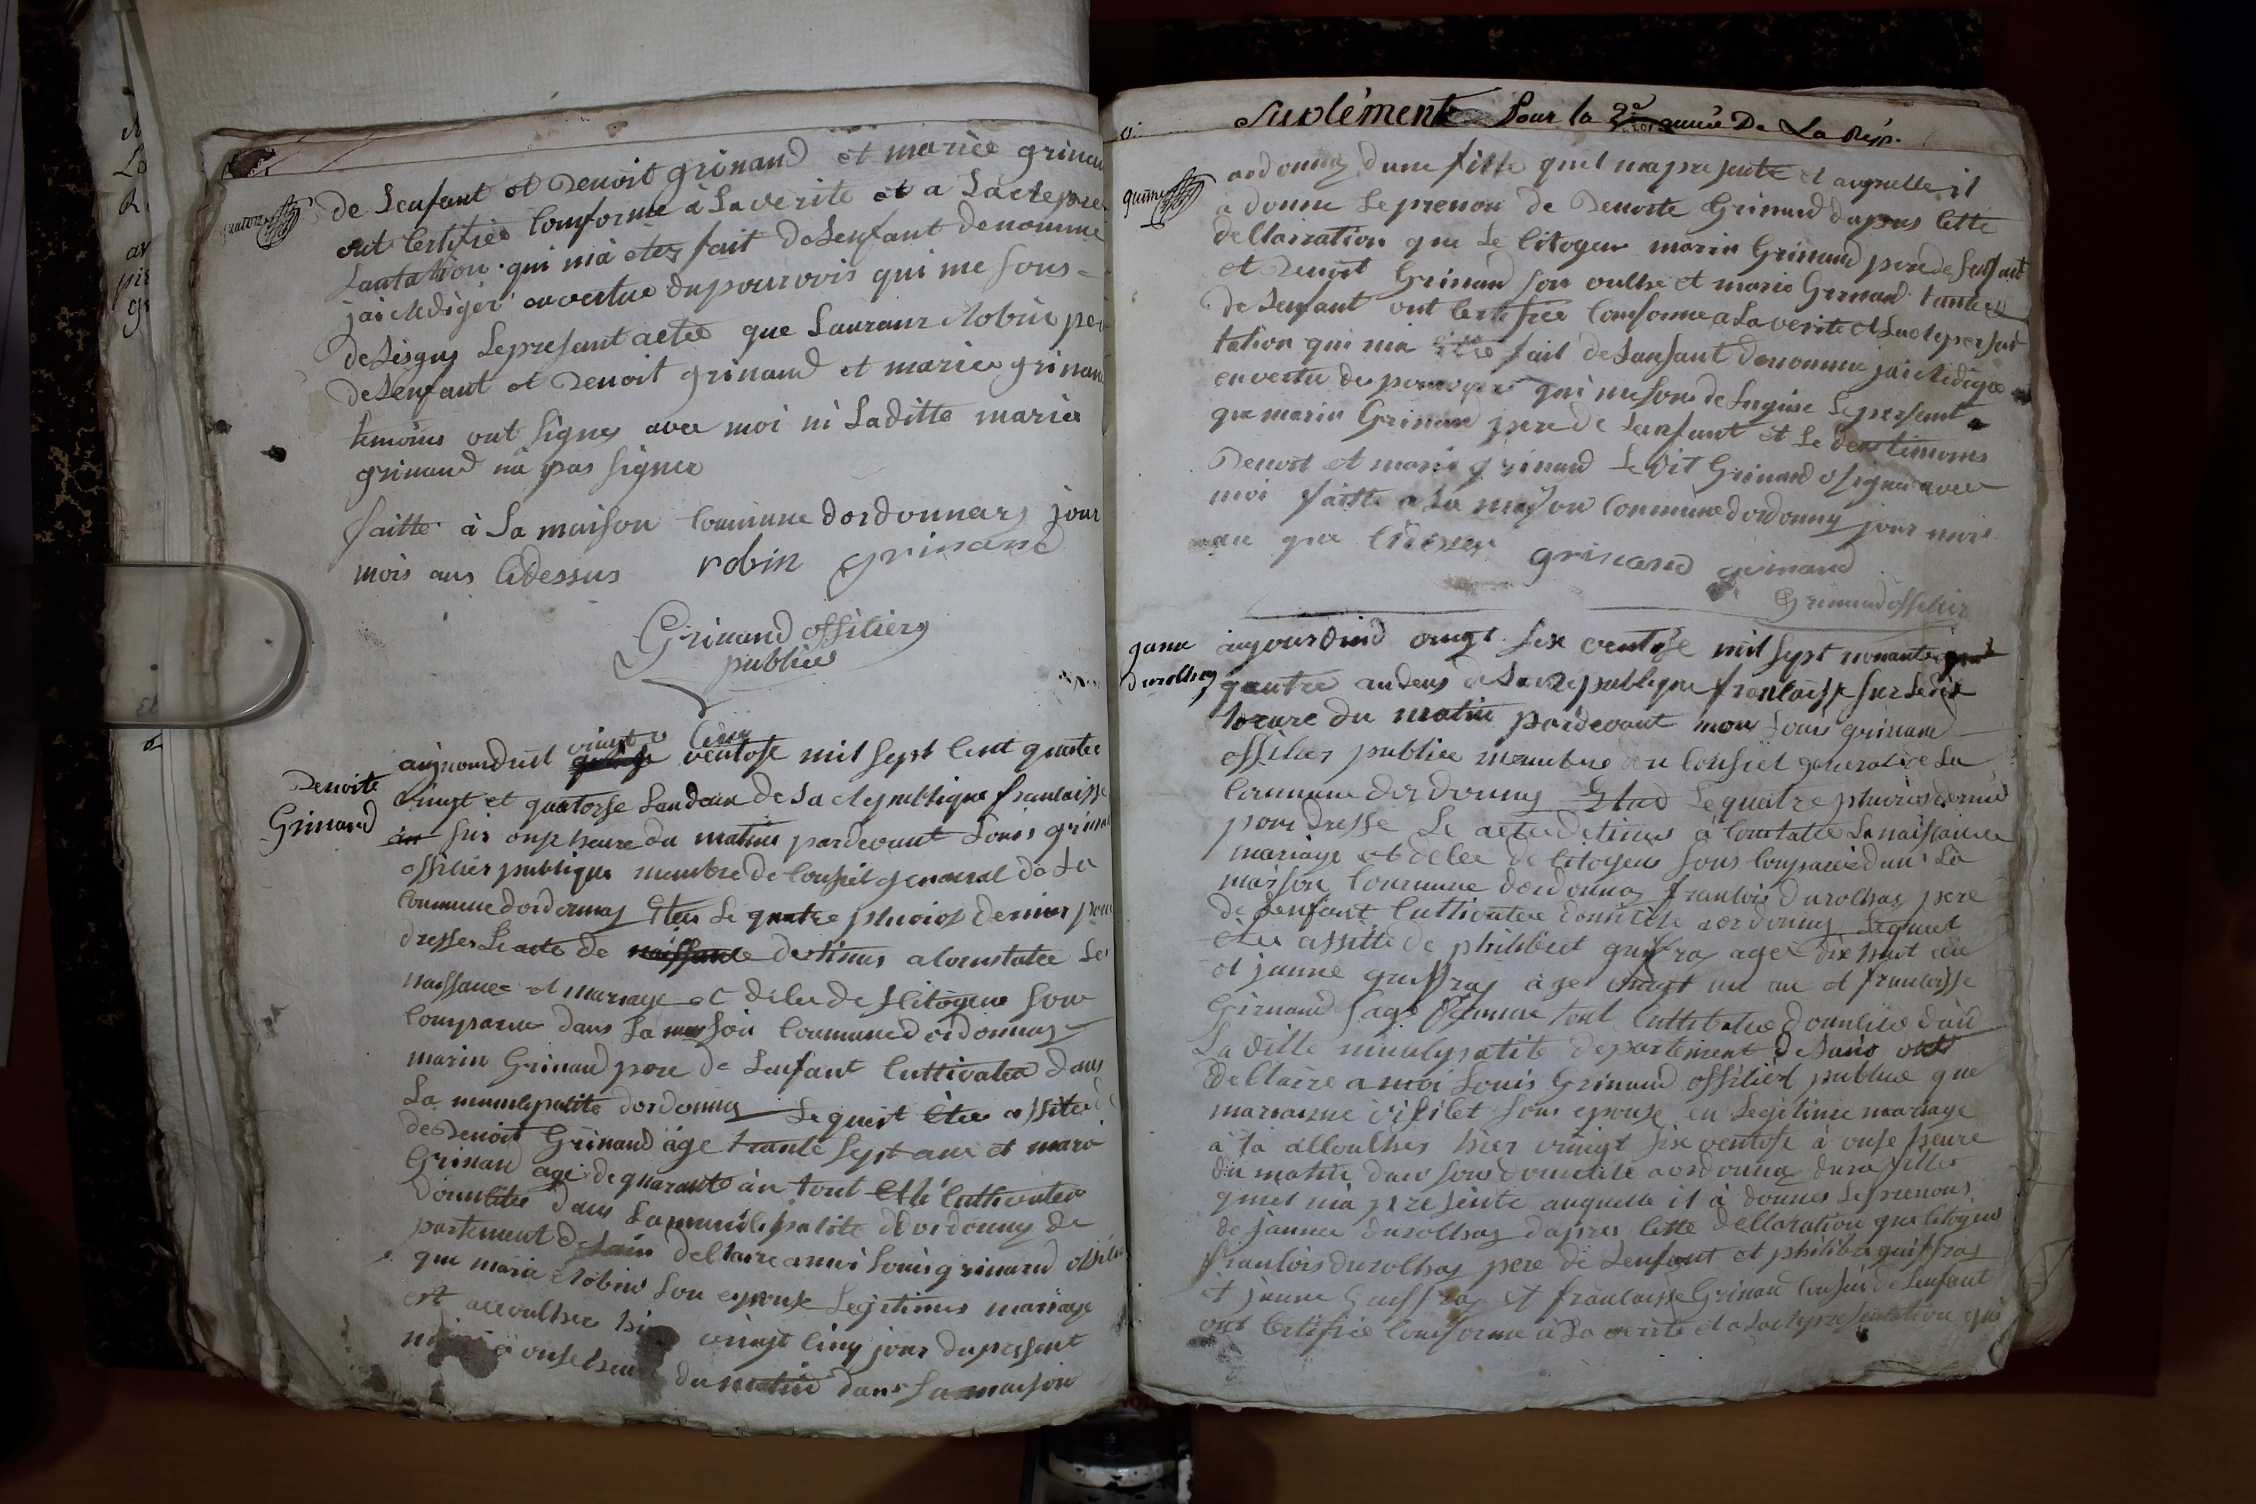 de Lenfant et Denoit grinand et mariée grinan
ont Certifiéé Conforme à La verite et a La Repre
santation qui mà etez fait de Lenfant denomme
jai Redigér en vertue du pourvois qui me sons
de Lésgus Le present actée que Lauranr Robin per
de Lenfant et Denoit grinand et mariée grinan
temoins ont Signes avec moi ni Laditte mariée
grinand nà pas Signer
faitte à La maison Commune dordonnaz jour
mois ans Cidessus robin grinand
Grinand offiliery
publiée
Denoite
Grinand
vingt Cinq
aujourduil ventose mil sept Cent quatre
vingt et quatorse Landeux de La Republique francaisse
sur onse heure du matin pardevant Louis grinan
offilier publique membre de Conseil general de La
Commune dordonnaz Eleu Le quatre pluvios dernier pour
dresser Lé acte de naissance destinus a Constatée Les
naissance et mariage et déles des Citoyens sont
Comparue dans La maison Commune dordonnaz
marin Grinand pere de Lenfant Cultivatée dans
La municipalité dordonnaz Le quel Etée assite de
de Denoit Grinand age trante sept ans et marie
Grinan agé de quarante àn tout Cultivatée
domiliée dans La municipalité dordonnaz de
partement de Lain dellaire a moi Louis grinand offilier
que maria Robins Son epouse Legitimes mariage
est accoulhee hier vingt Cinq jour du present
mois à onse heure du matin dans Sa maison
Suplément Pour la 2e année De La Rép.
ordonnaz dune fille quel ma presente et auquelle il
a donne Le prenon de Denoite Grinand dapres Cette
dellairation que Le Citoyen marin Grinand pere de Lenfant
et Denoit Grinan son onlhe et marie Grinand tante
de Lenfant ont Certifiée Conforme a La verite et La Represan
tation qui mà etée fait de Lanfant denomme jai Redigée
en vertu des pouvoyre qui me sons de Legue Le present
que marin Grinand pere de Lenfant et Le deux timoins
Denoit et marie grinand Le dit Grinand Signée avec
moi faitte a La maison Commune dordonnaz jour mois
que Cidesus grinand grinand
Grinand offilier
janne
durolhaz
aujourduid vingt six ventose mil sept nonante
quatre an deus de La Republique francaisse sur Le dix
heure du matin pardevant moi Louis grinand
offilier publiee membre du Conseil general de La
Commune dordonnaz Elud Le quatre pluvios dernié
pour dresse Le acte detinus à Contatée La naissance
mariage et délee de Citoyens sons Comparée dans La
maison Commune dordonnaz francois durolhaz pere
de Lenfant Cultivatée domicile aordonnaz Le quel
etée assitte de philibert guiffraz age dix huit an
et janne guiffraz àge vingt un an et francoisse
Grinand tout Cultivatée domilié dan
La ditte municipalité departement de Lain ont
dellaire a moi Louis Grinand offilier publiee que
marianne son epouse en Legitime mariage
a ta accoulhes hier vingt six ventose à onse heure
du matin dans Sons domicile aordonnaz dune fille
quiel mà presente auquelle il à donnes Le prenons
de janne durolhaz dapres Cette dellaration que Citoyen
francois durolhaz pere de Lenfant et philibere guiffraz
et janne guiffraz et francaisse Grinan Cousin de Lenfant
ont Certifiée Conforme à La verite et a La Representation qui